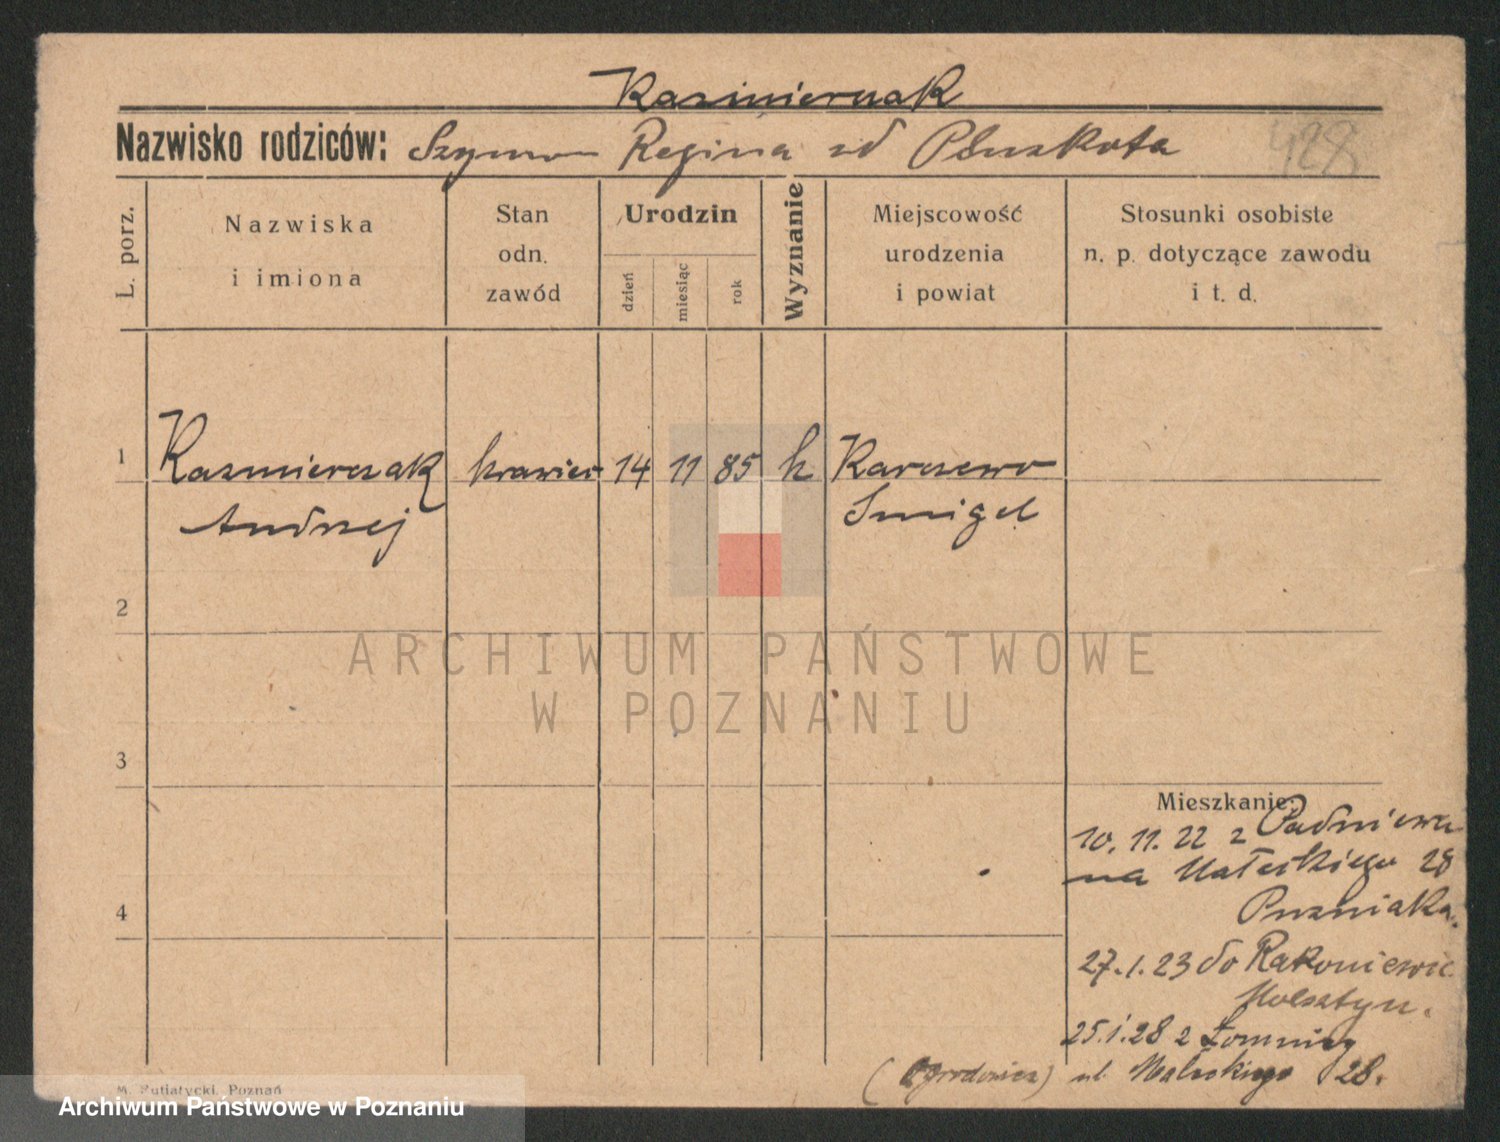 Kazimierczak
Nazwisko rodziców: Szymon Regina zd Pluskota
428
L. porz.
Nazwiska
i imiona
Stan
odn.
zawód
Urodzin
dzień
miesiąc
rok
Wyznanie
Miejscowość
urodzenia
i powiat
Stosunki osobiste
n. p. dotyczące zawodu
i t. d.
1 Kazmierczak krawiec 14 11 85 k Karczewo
Andrzej Smigel
2
ARCHIWUM PAŃSTWOWE
W POZNANIU
3
Mieszkanie:
10. 11. 22 z
na Małeckiego 28
4
27.1.23 do Rakoniewic
Wolsztyn.
25.1.28 z Łomnicy
(Ogrodowicz) ul. Małeckiego 28.
M. Putiatycki, Poznań
Archiwum Państwowe w Poznaniu